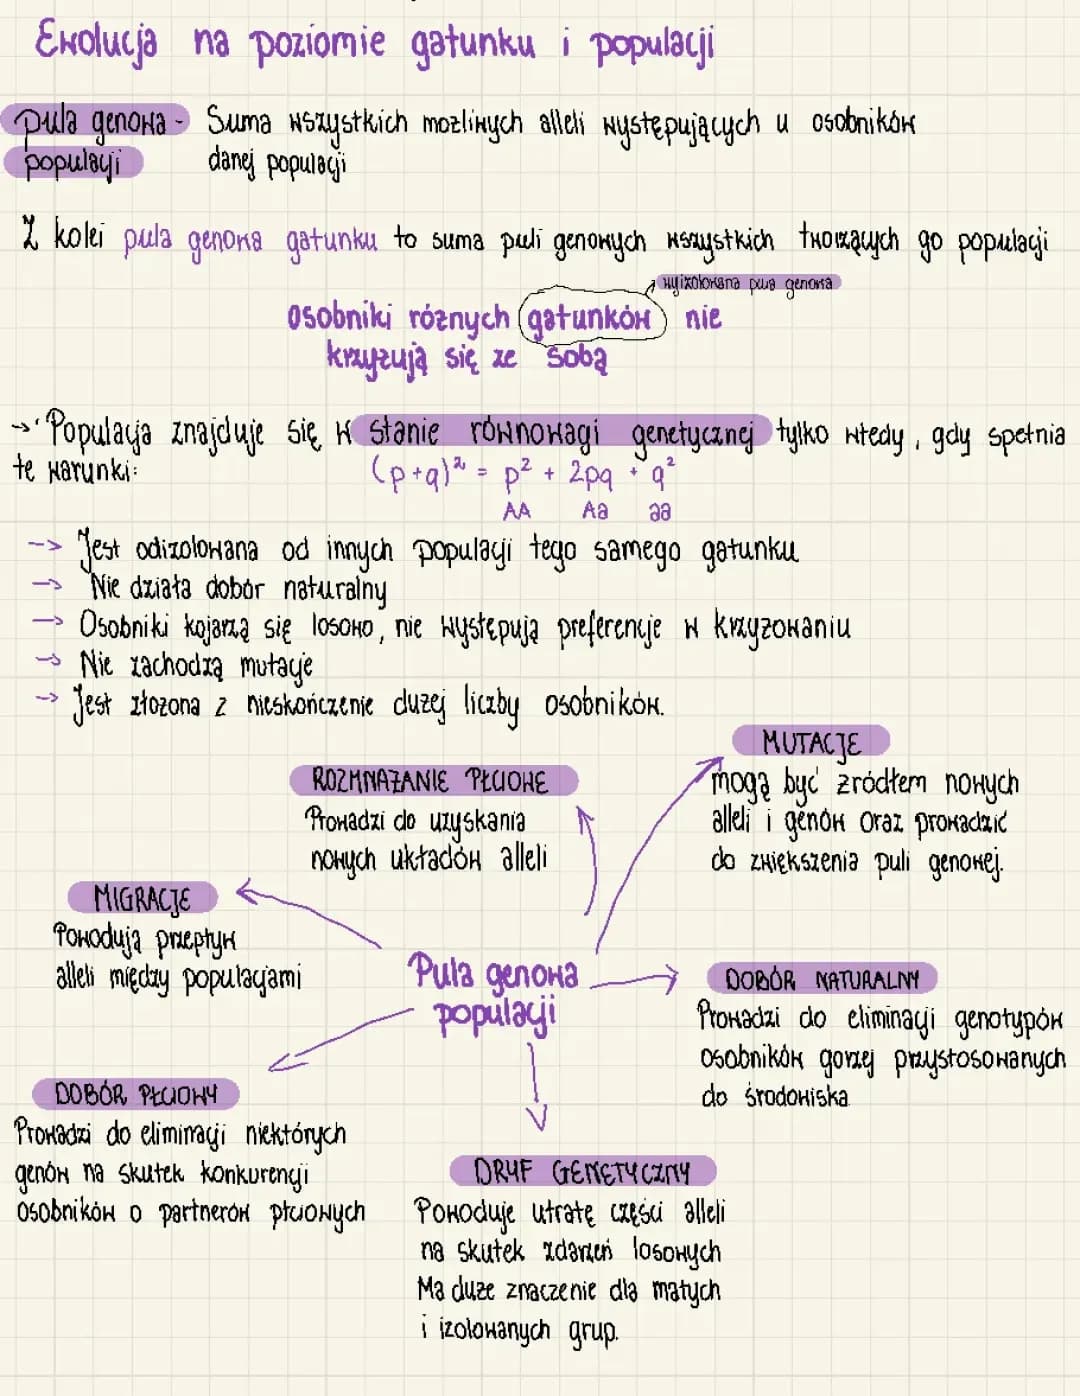 Ewolucja na poziomie gatunku i populacji
pula genowa - Suma wszystkich możliwych alleli występujących u osobników
populacji danej populacji
Z kolei pula genowa gatunku to suma puli genowych wszystkich tworzących go populacji
wyizolowana pula genowa
osobniki różnych gatunków nie
krzyżują się ze sobą
→ Populacja znajduje się w stanie równowagi genetycznej tylko wtedy, gdy spełnia
te warunki: (p+q)² = p² + 2pq + q²
AA Aa aa
-> Jest odizolowana od innych populacji tego samego gatunku
-> Nie działa dobór naturalny
-> Osobniki kojarzą się losowo, nie występują preferencje w krzyżowaniu
-> Nie zachodzą mutacje
-> Jest złożona z nieskończenie dużej liczby osobników.
MUTACJE
mogą być źródłem nowych
alleli i genów oraz prowadzić
do zwiększenia puli genowej.
ROZMNAŻANIE PŁCIOWE
Prowadzi do uzyskania
nowych układów alleli
MIGRACJE
Powodują przepływ
alleli między populacjami
Pula genowa
populacji
DOBÓR NATURALNY
Prowadzi do eliminacji genotypów
osobników gorzej przystosowanych
do środowiska
DOBÓR PŁCIOWY
Prowadzi do eliminacji niektórych
genów na skutek konkurencji
osobników o partnerów płciowych
DRYF GENETYCZNY
Powoduje utratę części alleli
na skutek zdarzeń losowych
Ma duże znaczenie dla małych
i izolowanych grup.